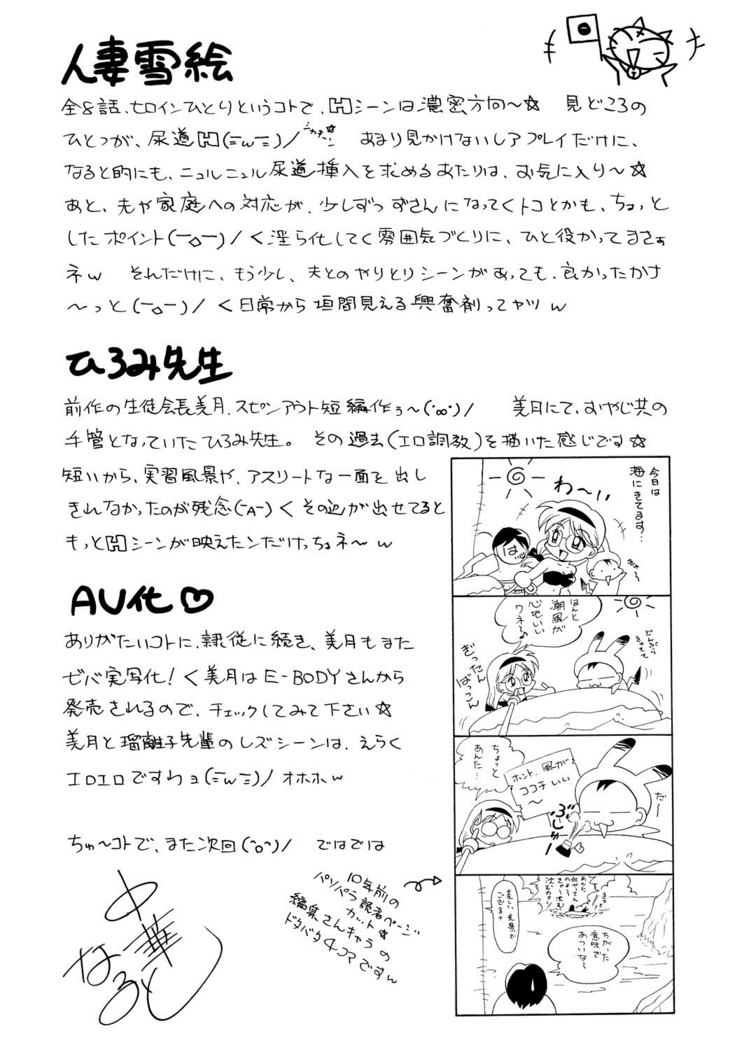 人妻雪絵
全8話、ヒロインひとりというコトで、Hシーンは濃密方向〜☆ 見どころの
ひとつが、尿道H(ニwニ)/ あまり見かけないレアプレイだけに、
なると的にも、ニュルニュル尿道挿入を求めるあたりは、お気に入り〜☆
あと、夫や家庭への対応が、少しずつずさんになってくトコとかも、ちょっと
したポイント(ー。ー)/く淫ら化してく雰囲気づくりに、ひと役かってまさぁ
ネw それだけに、もう少し、夫とのやりとりシーンがあっても、良かったかな
〜っと(ー。ー)/く日常から垣間見える興奮剤ってヤツw
ひろみ先生
前作の生徒会長美月、スピンアウト短編作ぅ〜(°∞°)/ 美月にて、おやじ共の
手管となっていたひろみ先生。その過去(エロ調教)を描いた感じです☆
短いから、実習風景や、アスリートな一面を出し
きれなかったのが残念(ーAー)くその辺が出せてると
もっとHシーンが映えたンだけっちょネ〜w
AV化♡
ありがたいコトに、隷従に続き、美月もまた
ゼパ実写化!く美月はE-BODYさんから
発売されるので、チェックしてみて下さい☆
美月と瑠離子先輩のレズシーンは、えらく
エロエロですわョ(ニwニ)/オホホw
ちゅ〜コトで、また次回(^o^)/ ではでは
中華なると
10年前の
パソパラ読者ページ
カット☆
編集さんキャラの
ドタバタ4コマですw
今日は
海にきてます…
わ〜い
ほんと
潮風が
心地いい
ワネ〜♪
どんぶら
ぎったん
ばっこん
ちょっと
あんた…
ホント、風が
ココチいい
〜
だ〜
ぶしゅ!
美しい光景で
ござるナ
ちがった
意味で
あついな〜